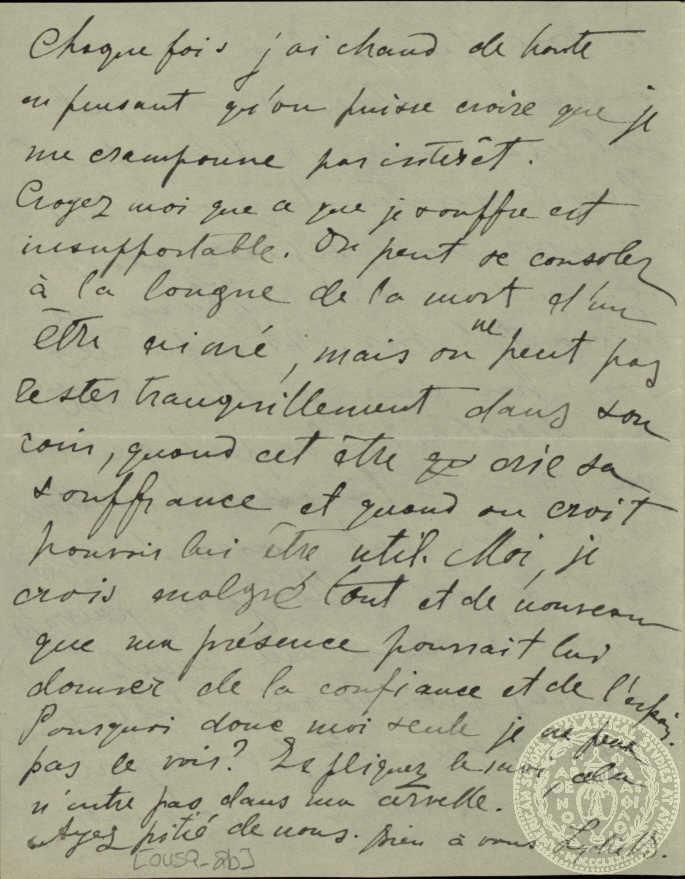 Chaque fois j'ai chaud de honte
en pensant qu'on puisse croire que je
me cramponne par intérêt.
Croyez moi que ce que je souffre est
insupportable. On peut se consoler
à la longue de la mort d'un
être aimé, mais on ne peut pas
rester tranquillement dans son
coin, quand cet être crie sa
souffrance et quand on croit
pouvoir lui être util. Moi, je
crois malgré tout et de nouveau
que ma présence pourrait lui
donner de la confiance et de l'espoir.
Pourquoi donc moi seule je ne peux
pas le voir? Expliquez le moi, cela
n'entre pas dans ma cervelle.
Ayez pitié de nous. Bien à vous
[OUSA-2b]